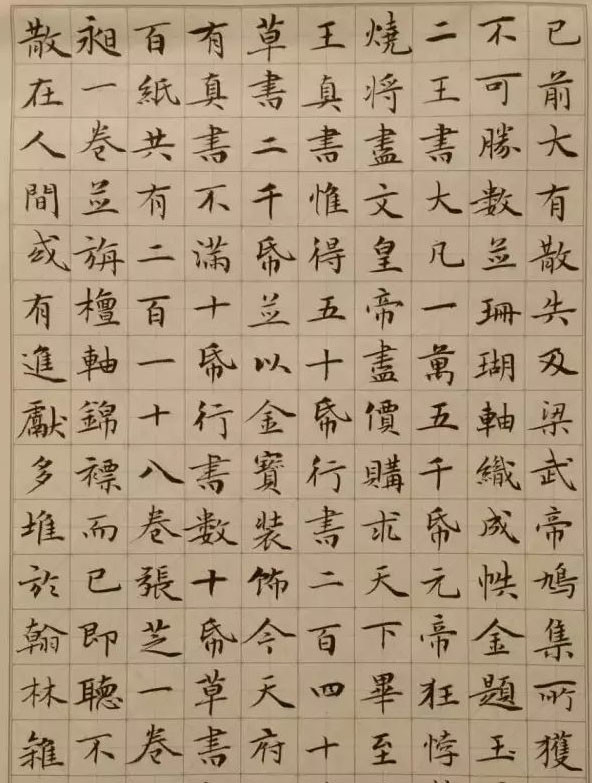 已前大有散失及梁武帝鳩集所獲
不可勝数並珊瑚軸織成帙金題玉
二王書大凡一萬五千帋元帝狂悖
燒將盡文皇帝盡價購求天下畢至
王真書惟得五十帋行書二百四十
草書二千帋並以金寶裝飾今天府
有真書不滿十帋行書数十帋草書
百紙共有二百一十八卷張芝一卷
昶一卷並旃檀軸錦褾而已即聽不
散在人間或有進獻多堆於翰林雜